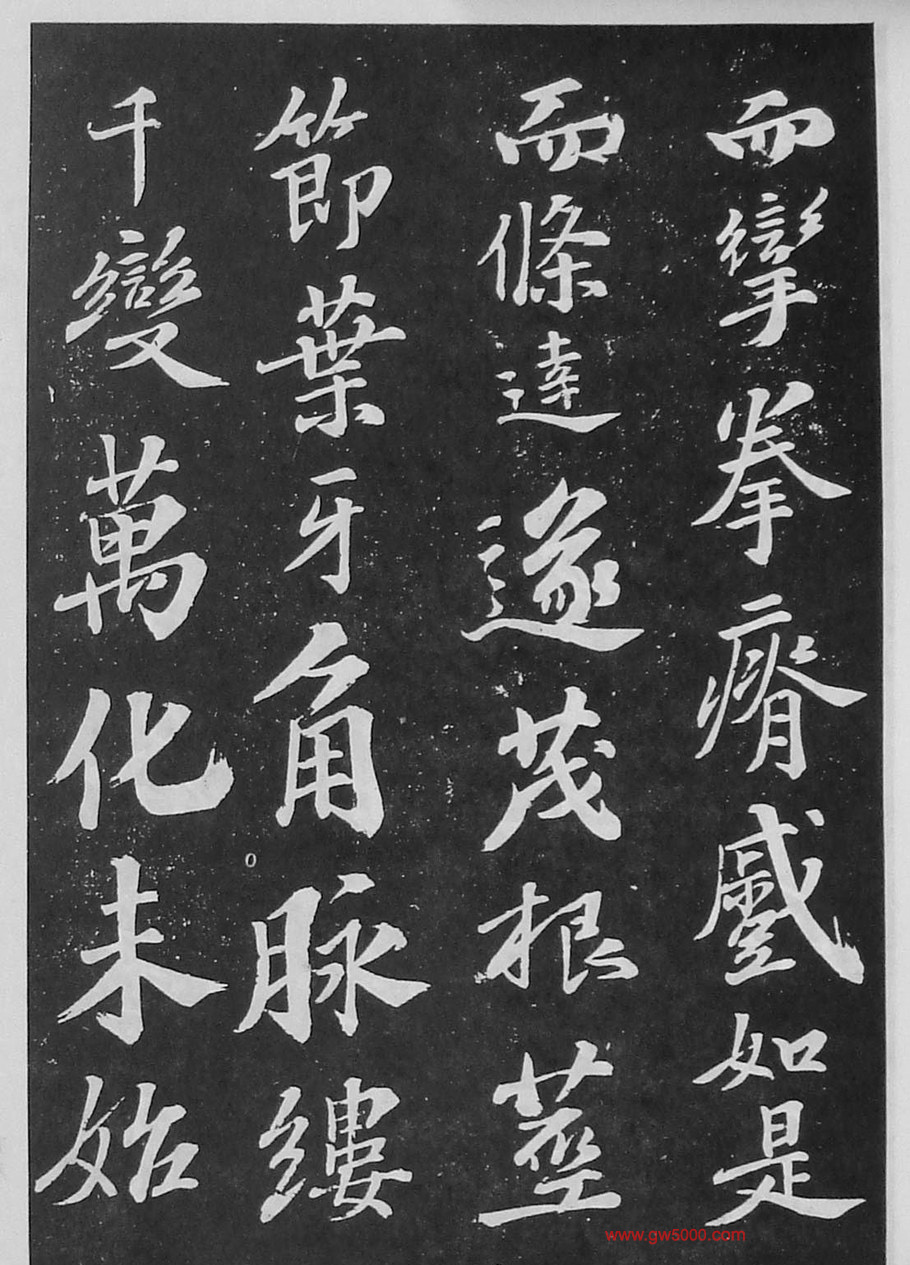 而攣拳瘠蹙如是
而條達遂茂根莖
節葉牙角脉縷
千變萬化未始
www.gw5000.com